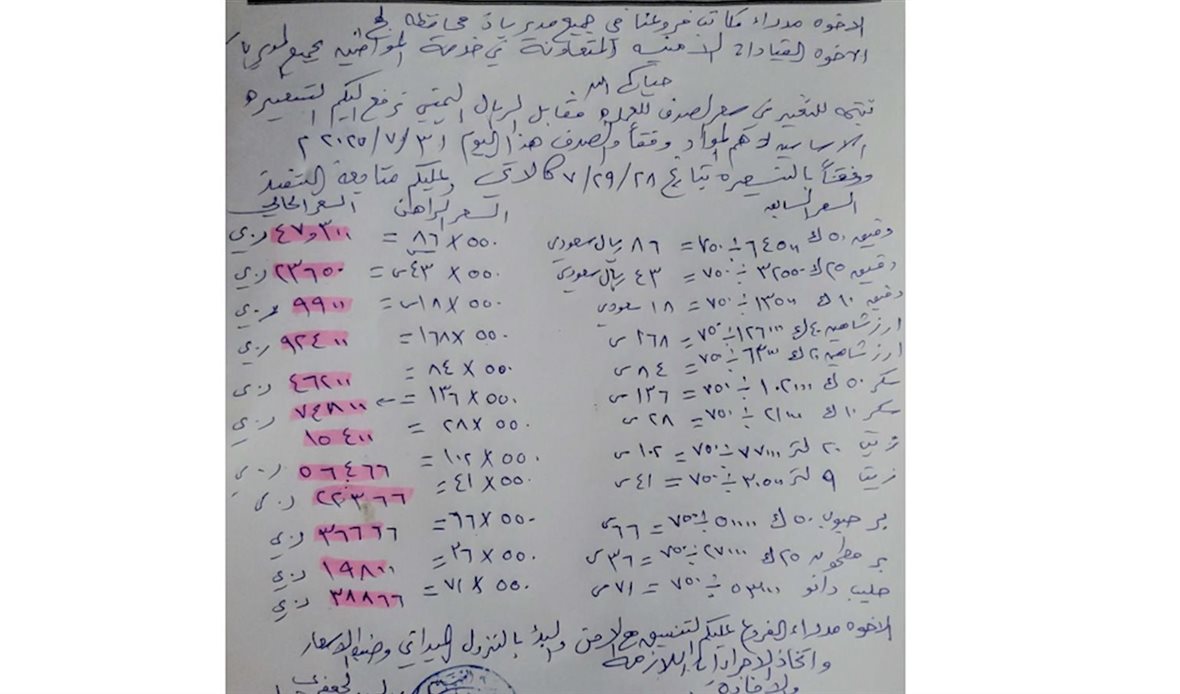 الاخوه مدراء مكاتب فروعنا في جميع مديريات محافظة لحج
الاخوه القيادات الامنيه المتعاونة في خدمة المواطنيه بجميع المديريات
حياكم الله
نتيجه للتغيير في سعر الصرف للعمله مقابل الريال اليمني نرفع اليكم التسعيره
الاساسيه لاهم المواد وفقاً والصرف هذا اليوم ٣١/٧/٢٠٢٥ م
ووفقتاً بالتسعيره بتاريخ ٢٨/٧/٢٩ كالاتي وعليكم متابعة التنفيذ
السعر السابق السعر الراهن السعر الحالي
دقيق ٥٠ ك ٦٤٥٠٠ ÷ ٧٥٠ = ٨٦ ريال سعودي ٥٥٠ × ٨٦ = ٤٧٣٠٠ ر.ي
دقيق ٢٥ ك ٣٢٥٥٠ ÷ ٧٥٠ = ٤٣ ريال سعودي ٥٥٠ × ٤٣ س = ٢٣٦٥٠ ر.ي
دقيق ١٠ ك ١٣٥٠٠ ÷ ٧٥٠ = ١٨ سعودي ٥٥٠ × ١٨ س = ٩٩٠٠ ر.ي
ارز شاهيه ٤٠ ك ١٢٦٠٠٠ ÷ ٧٥٠ = ٢٦٨ س ٥٥٠ × ١٦٨ = ٩٢٤٠٠ ر.ي
ارز شاهيه ٢٠ ك ٦٣٠٠٠ ÷ ٧٥٠ = ٨٤ س ٥٥٠ × ٨٤ = ٤٦٢٠٠ ر.ي
سكر ٥٠ ك ١٠٢٠٠٠ ÷ ٧٥٠ = ١٣٦ س ٥٥٠ × ١٣٦ = ٧٤٨٠٠ ر.ي
سكر ١٠ ك ٢١٠٠٠ ÷ ٧٥٠ = ٢٨ س ٥٥٠ × ٢٨ = ١٥٤٠٠
زيت ٢٠ لتر ٧٧٠٠٠ ÷ ٧٥٠ = ١٠٢ س ٥٥٠ × ١٠٢ = ٥٦٤٦٦ ر.ي
زيت ٩ لتر ٣٠٥٠٠ ÷ ٧٥٠ = ٤١ س ٥٥٠ × ٤١ = ٢٢٣٦٦ ر.ي
بر حبوب ٥٠ ك ٥٠٠٠٠ ÷ ٧٥٠ = ٦٦ س ٥٥٠ × ٦٦ = ٣٦٦٦٦ ر.ي
بر مطحون ٢٥ ك ٢٧٠٠٠ ÷ ٧٥٠ = ٣٦ س ٥٥٠ × ٣٦ = ١٩٨٠٠ ر.ي
حليب دانو ٥٣٠٠٠ ÷ ٧٥٠ = ٧١ س ٥٥٠ × ٧١ = ٣٨٨٦٦ ر.ي
الاخوه مدراء الفروع عليكم لتنسيق مع الامن والبدؤ بالنزول الميداني وضبط الاسعار
واتخاذ الاجراءات اللازمة
والافادة